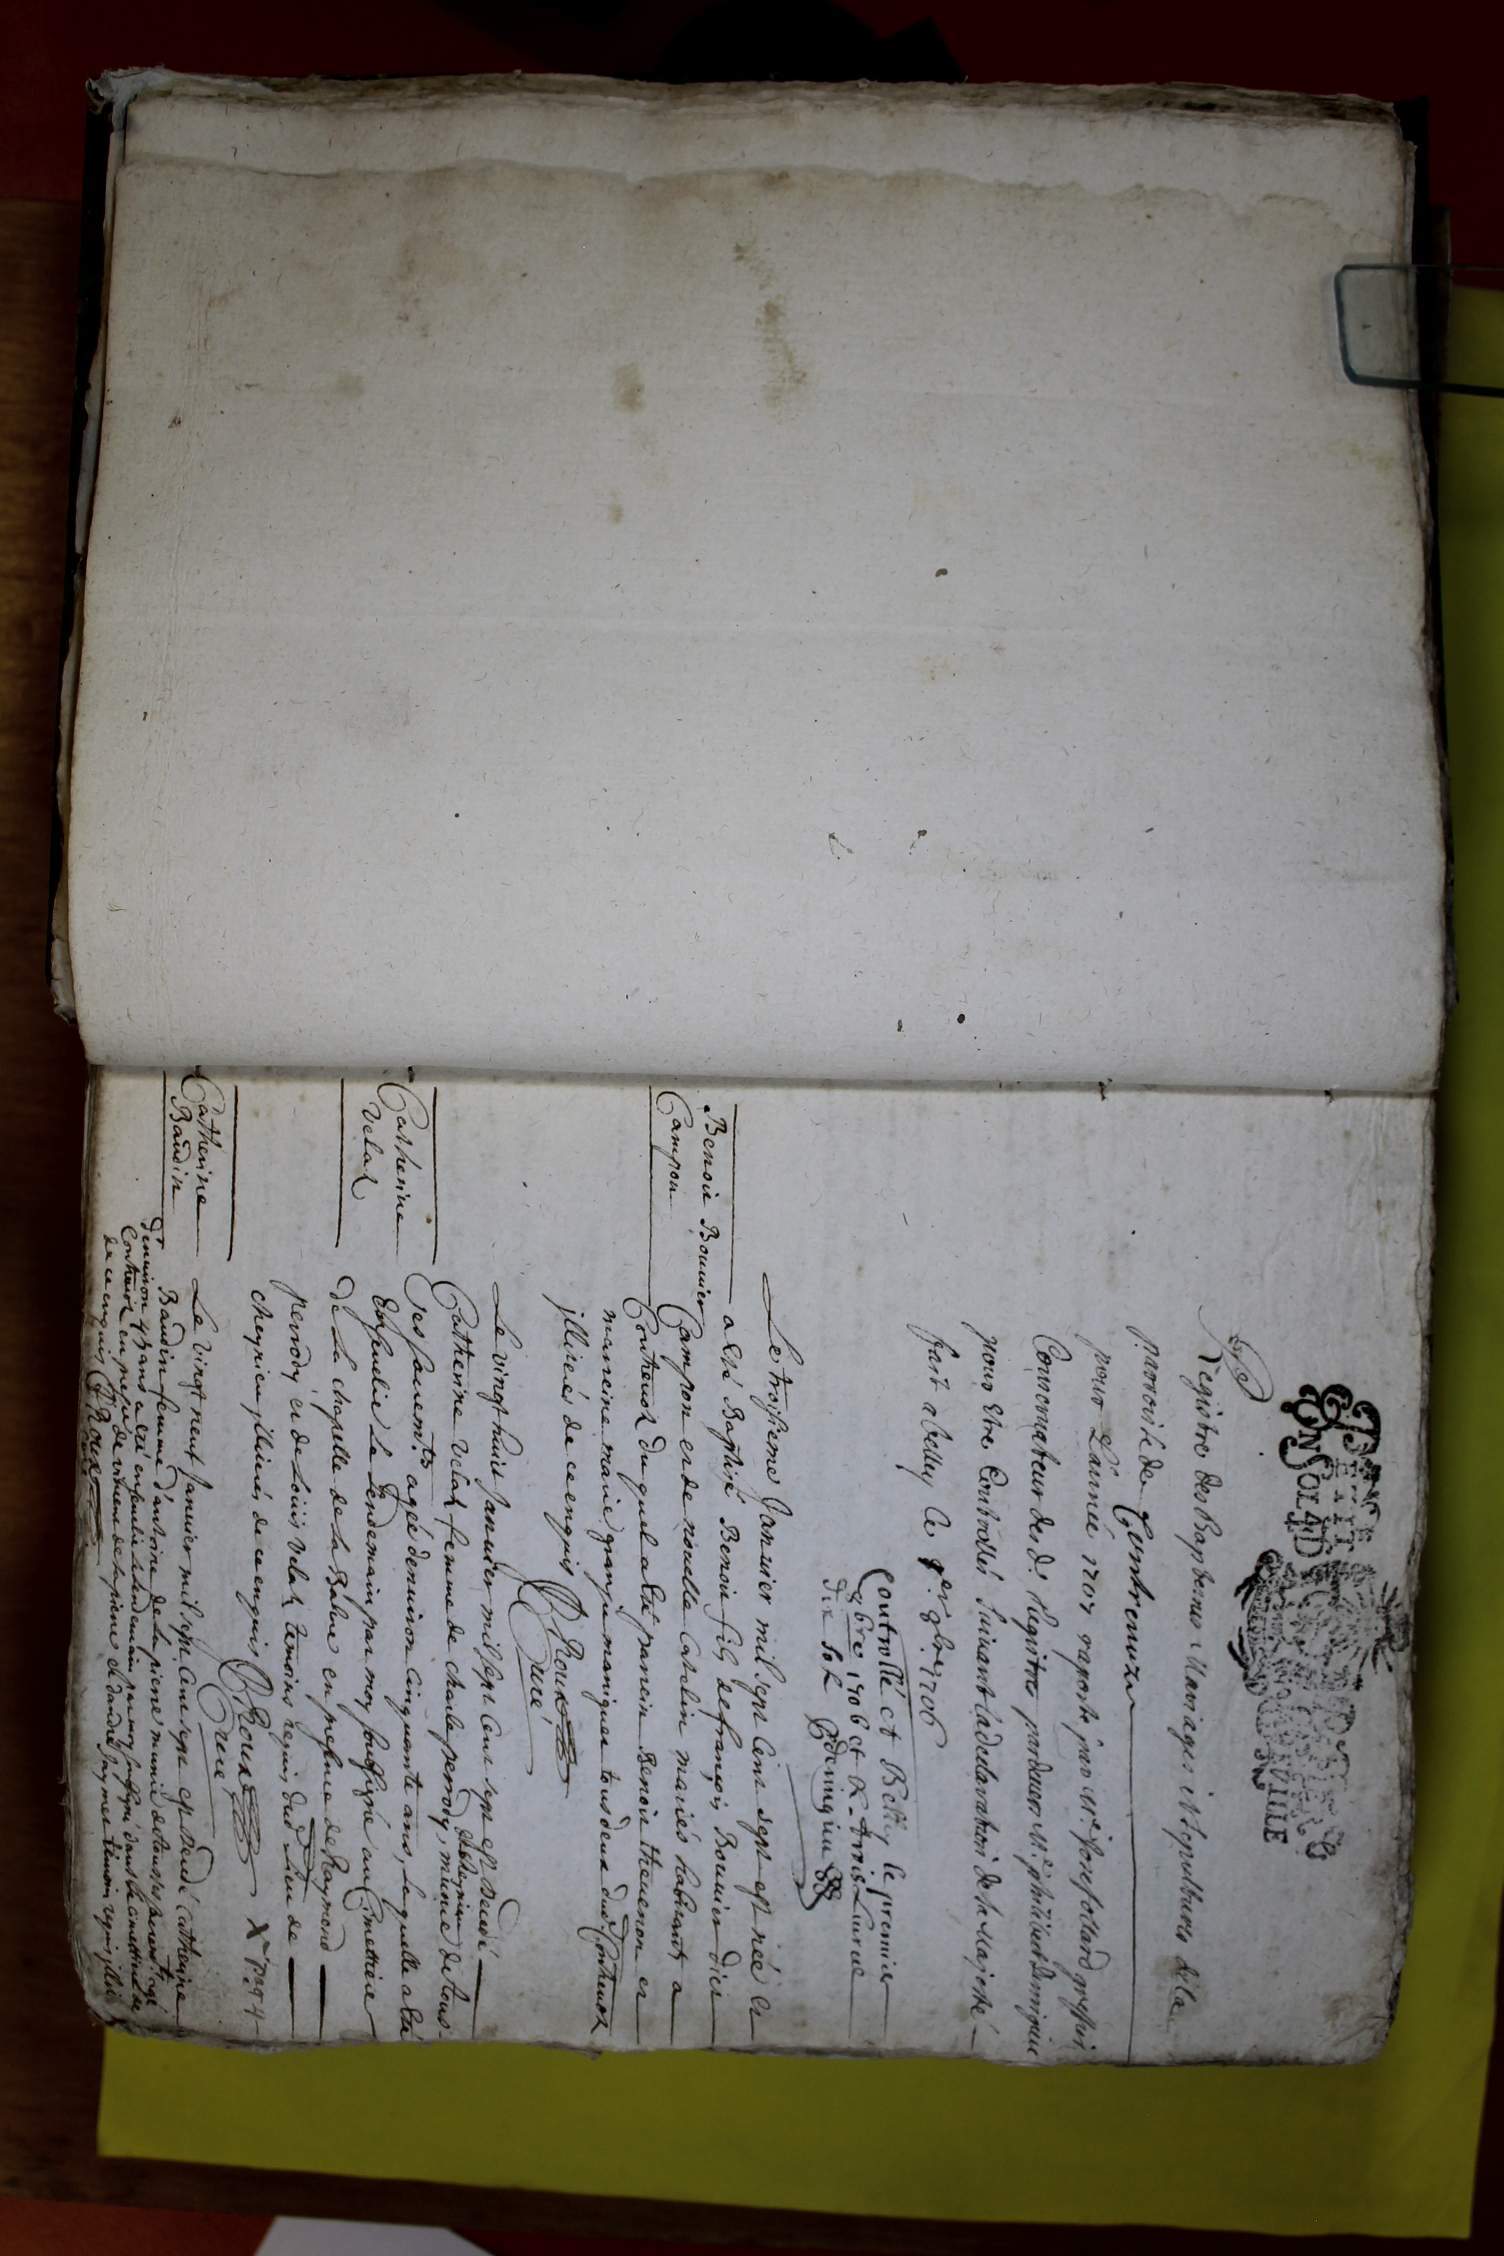 UN SOL 4D
Registre des Baptemes Mariages et Sepultures de la
paroisse de Contrenuzu
pour L'année 1707 raporté par Mre. Joseph greffier
Conservateur des ds. Registres pardevant Mr.
pour Etre Controllés suivant la declaration de sa Majesté
fait a belley le per. 8bre 1706
Controllé et Belley le premier
8bre 1706 et R. trois Livres
dix sols
Benoit Bouvier
Campon
Le troisieme Janvier mil sept Cent sept est née et
a été Baptisé Benoit fils de françois Bouvier dict
Campon et de nouelle Catelin mariés habitants a
Contrevoz duquel a été parrein Benoit thevenon et
marreine marie grange maniquet tous deux dud. Contrevoz
jllitérés de ce enquis P. Roux
Curé
Catherine
Velat
Le vingt huit Janvier mil sept Cent sept est decedé
Catherine Velat femme de charle perrody, munie de tous
de cheyrieu
ses sacremts. agée denviron cinquante ans, laquelle a été
Ensevelie le Lendemain par moy soussigné au Cimettiere
de La chapelle de la Balme en presence de Raymond
perrody et de Loüis Velat temoins requis dud Lieu de
cheyrieu jllitérés de ce enquis P. Roux
Curé
Catherine
Baudin
Le vingt neuf Janvier mil sept Cent sept est decedé Catherine
Baudin femme d'antoine de la pierre munie de tous ses sacremts. agé
d'environ 43 ans a été ensevelie le lendemain par moy soussigné dans le cimettiere de
Contrevoz en presence de vincent de lapierre et dandré Jaymet temoins requis jllit
de ce enquis P. Roux
Curé